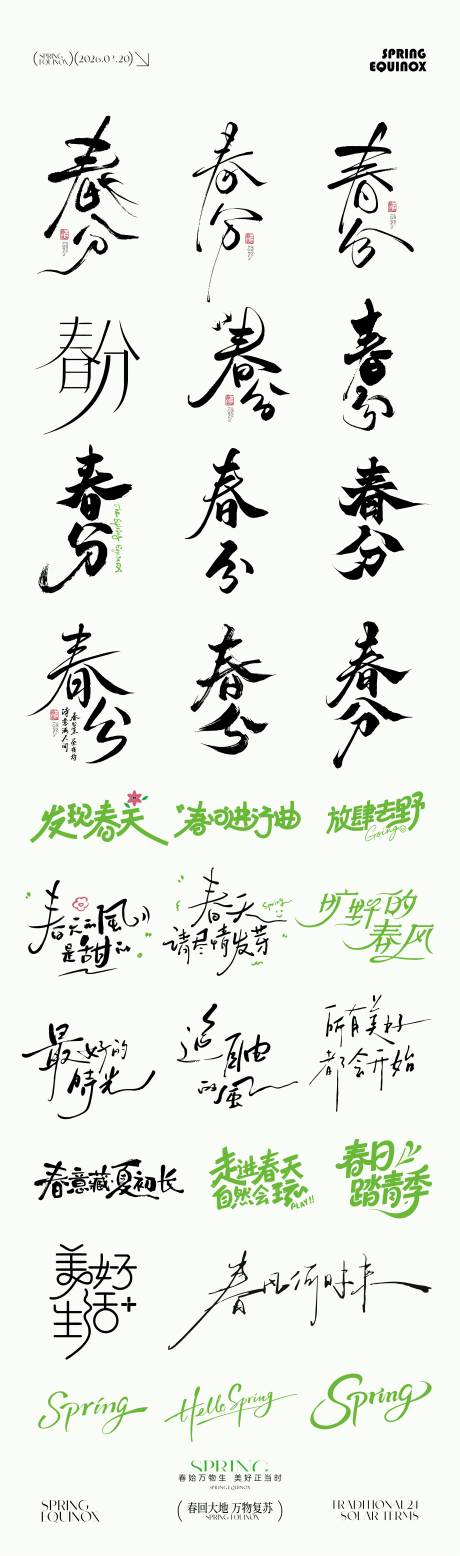 SPRING
EQUINOX
SPRING
EQUINOX
春分
春分
春分
春分
春分
春分
春分
The Spring Equinox
春分
春分
春分
春分
春分
发现春天
春日进行曲
放肆去野
Going
春天的风
是甜的
春天
Spring
请尽情发芽
旷野的
春风
最好的
时光
追自由
的风
所有美好
都会开始
春意藏 夏初长
走进春天
自然会玩
PLAY!!
春日
踏青季
美好
生活+
春风何时来
Spring
Hello Spring
Spring
SPRING
春始万物生 美好正当时
SPRING EQUINOX
SPRING
EQUINOX
(春回大地 万物复苏)
SPRING EQUINOX
TRADITIONAL 24
SOLAR TERMS